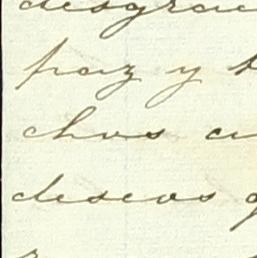 desgrac
paz y t
chos cu
deseos q